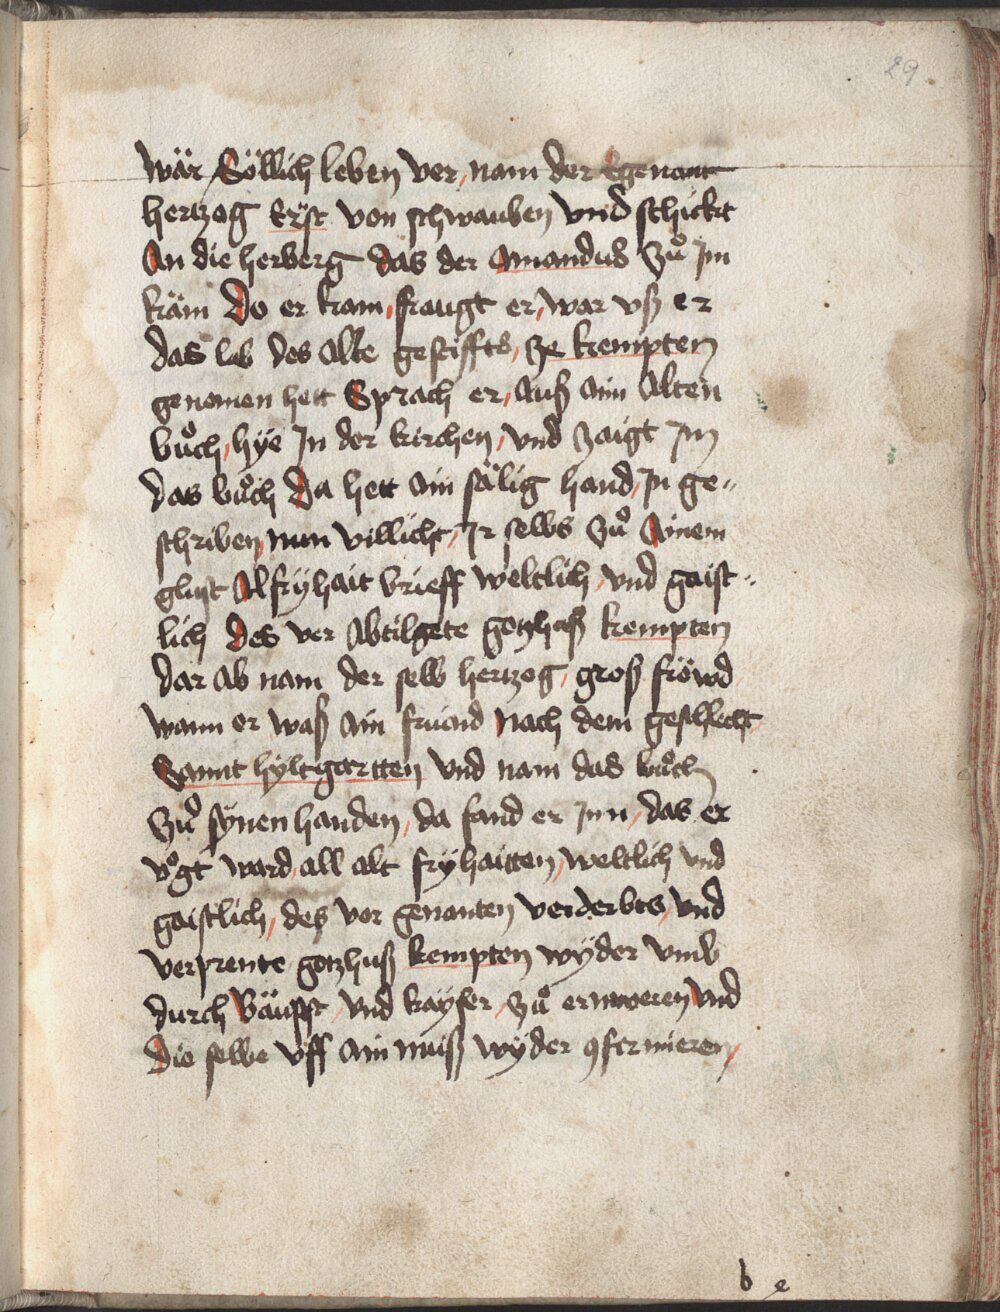 29
wär Söllich leben ver, nam der Egenant
hertzog Ernst von schwauben vnd schickt
An die herberg das der Amandus zů im
käm Do er kam, fraugt er, war vß er
das leb des alte gestiffts, ze kempten
genomen hett Sprach er, Auß aim Alten
bůch, hye In der kirchen, vnd zaigt Im
das bůch Da hett ain sälig hand, In ge„
schriben, nun villicht, Ir selbs zů Ainem
glust Al fryhait brieff weltlich, vnd gaist„
lich des ver Abtilgete gotzhuß kempten
dar Ab nam der selb hertzog, groß fröwd
wann er waß ain fruind Nach dem geschlecht
Sannt hyltgartten vnd nam das bůch
zů synen handen, da fand er Inn, das er
vögt ward, all alt fryhaitten, weltlich vnd
gaistlich, deß vor genanten verderbts, vnd
verprente gotzhuß kempten wyder vmb
durch Bäupst vnd kayser, zů ernuweren vnd
die selbe vff ain nuiß wyder 9fermieren,
b e